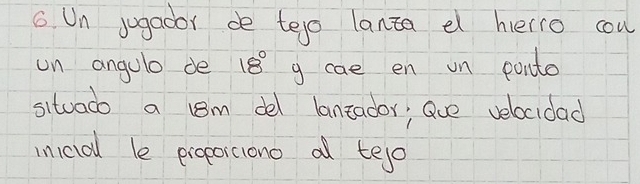 6. Un jugador de tejo lanza el hierro con
un angulo de 18° y cae en un punto
situado a 18m del lanzador; Que velocidad
inicial le proporciono al tejo